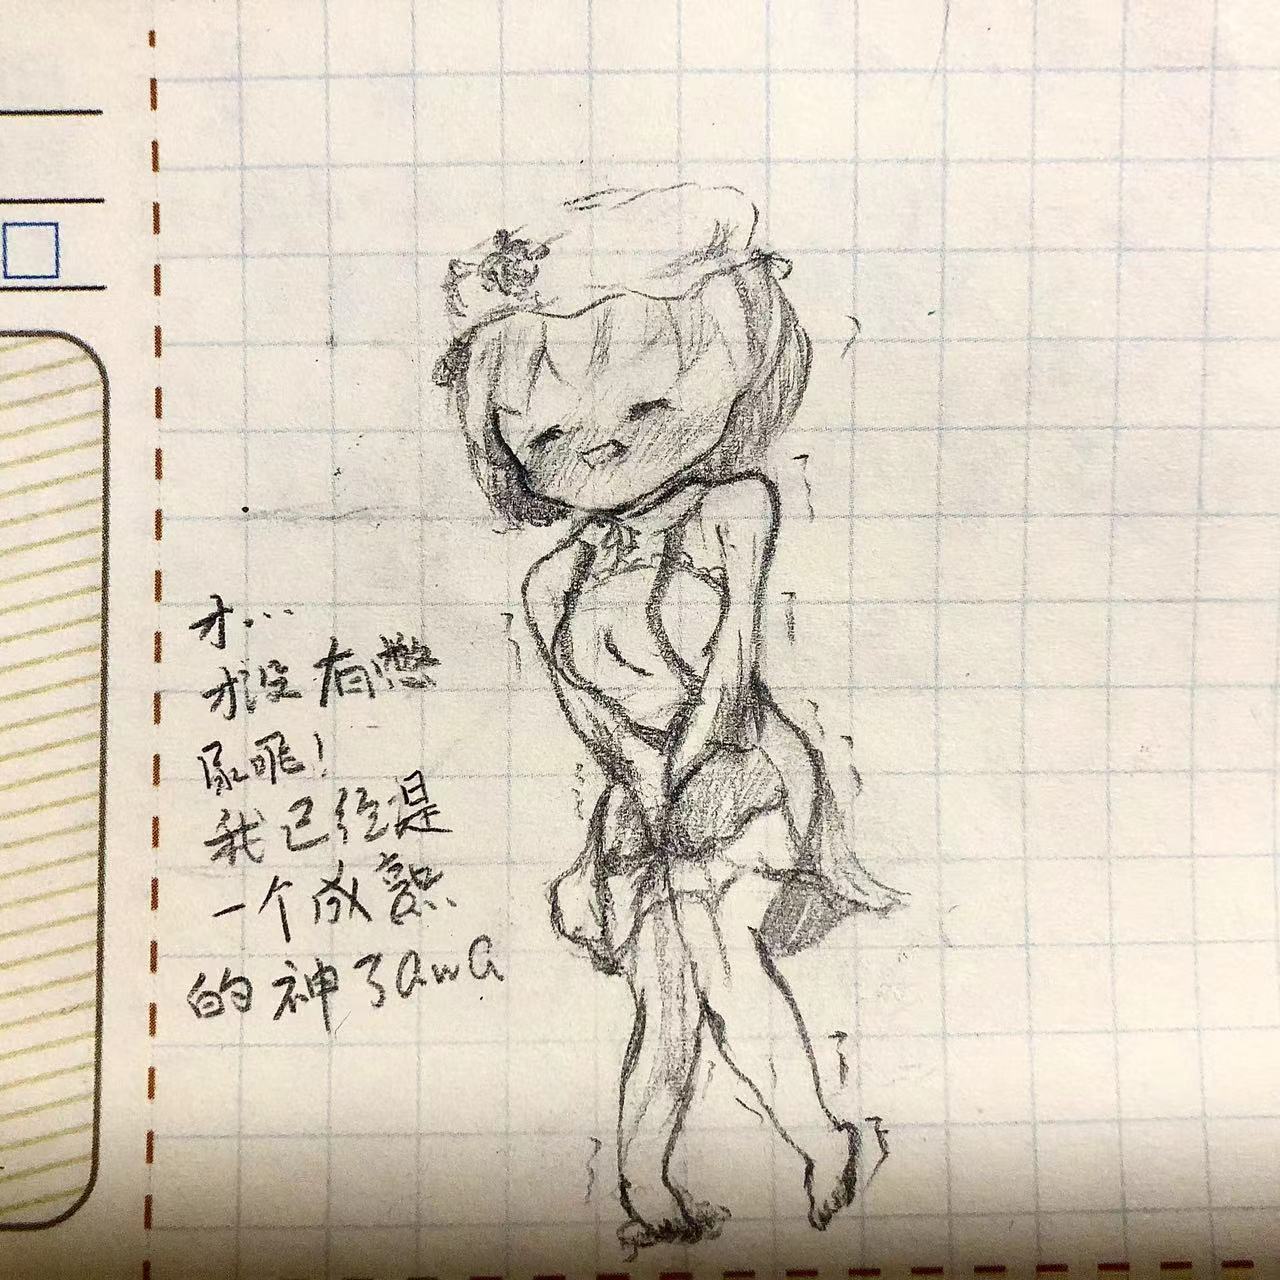 才…
才没有憋
尿呢!
我已经是
一个成熟
的神了awa